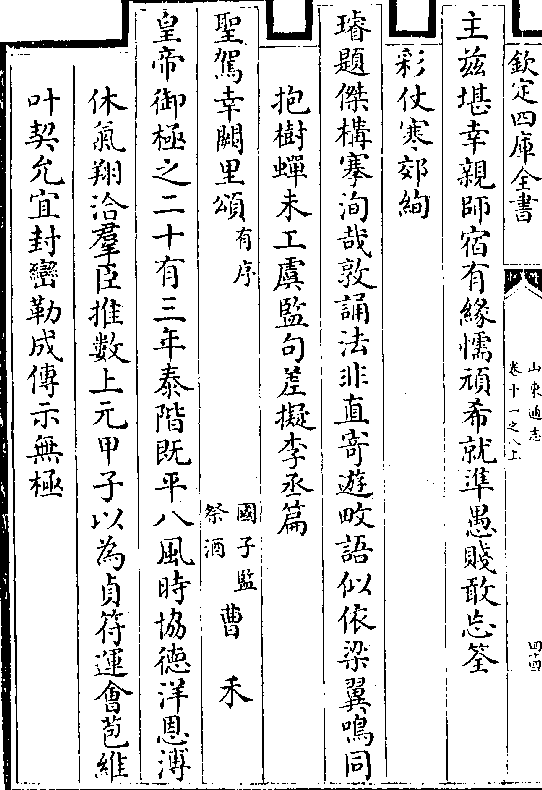 欽定四庫全書
山東通志
卷十一之八上
四十四
主兹堪幸親師宿有緣懦頑希就準愚賤敢忘筌
彩仗寒郊絢
璿題傑構搴洵哉敦誦法非直寄遊畋語似依梁翼鳴同
抱樹蟬未工虞監句差擬李丞篇
聖駕幸闕里頌有序
國子監祭酒曹禾
皇帝御極之二十有三年泰階既平八風時協德洋恩溥
休氣翔洽羣臣推數上元甲子以為貞符運會苞維
叶契允宜封巒勒成傳示無極